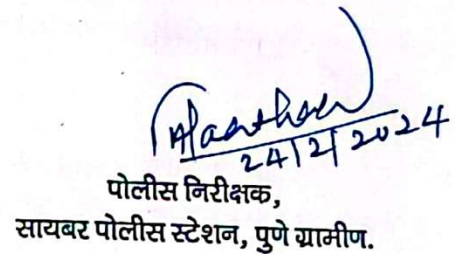 24/2/2024
पोलीस निरीक्षक,
सायबर पोलीस स्टेशन, पुणे ग्रामीण.